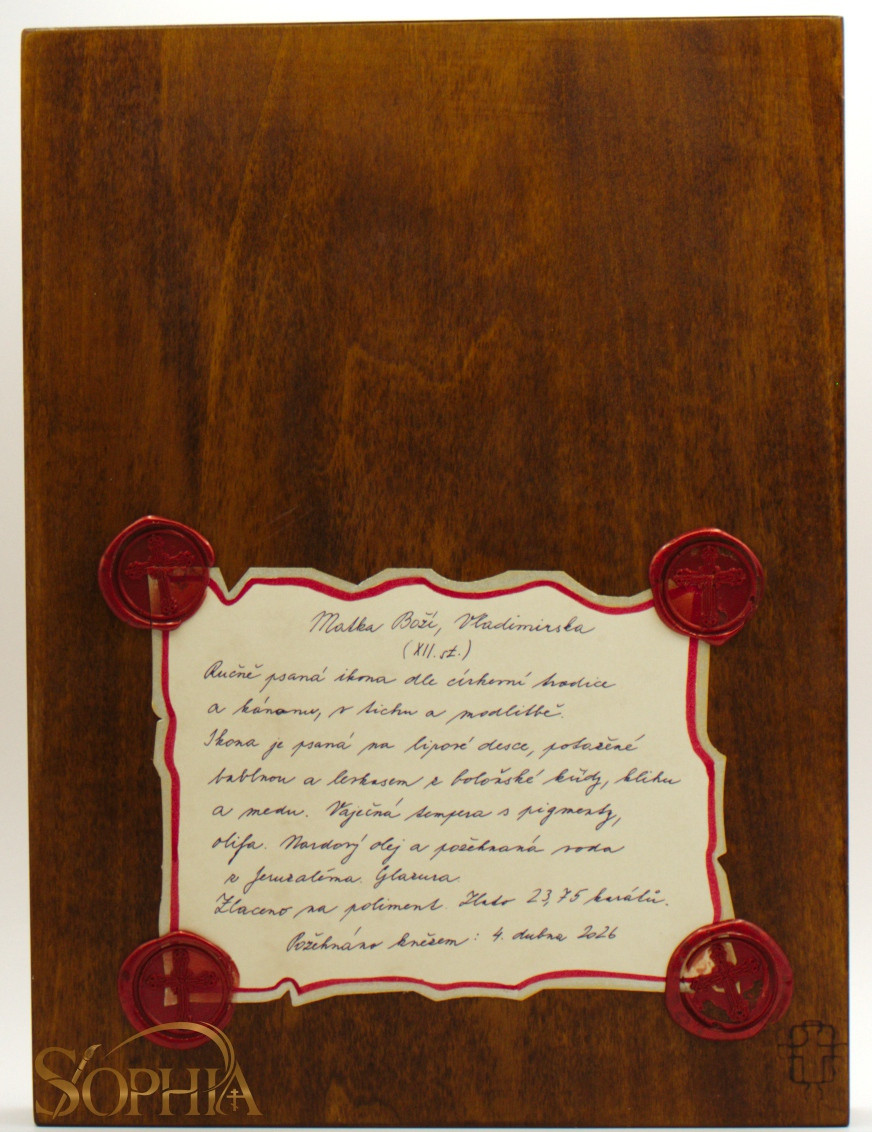 Matka Boží, Vladimirska
(XII. st.)
Ručně psaná ikona dle církevní tradice
a kánonu, v tichu a modlitbě.
Ikona je psaná na lipové desce, potažené
bavlnou a levkasem z boloňské křídy, klihu
a medu. Vaječná tempera s pigmenty,
olifa. Nardový olej a požehnaná voda
z Jeruzaléma. Glazura.
Zlaceno na poliment. Zlato 23,75 karátů.
Požehnáno knězem: 4. dubna 2026
SOPHIA